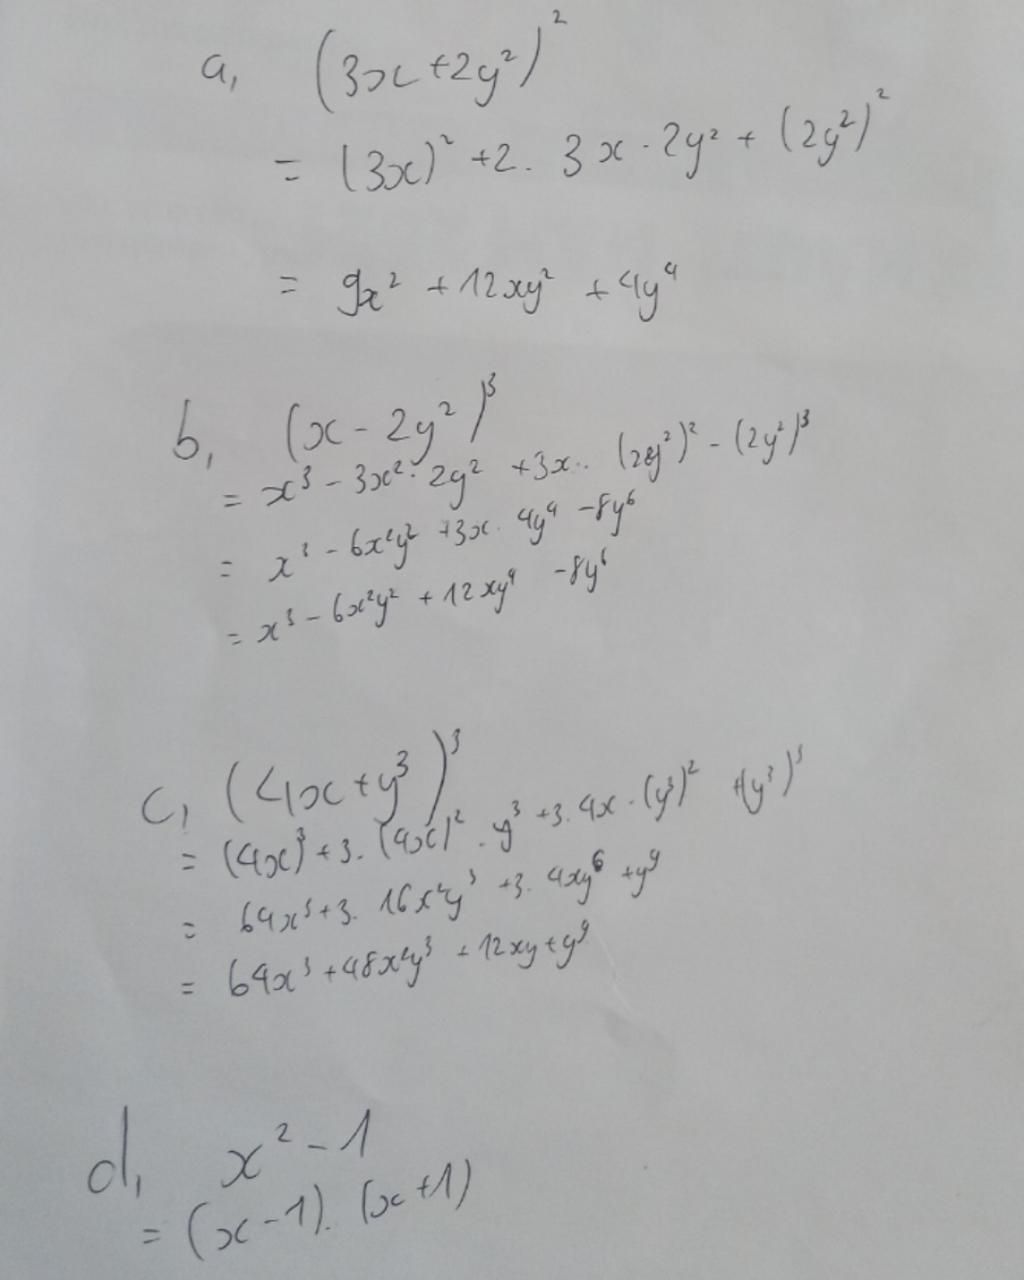 a, (3x+2y²)²
= (3x)² +2. 3x · 2y² + (2y²)²
= 9x² + 12xy² + 4y⁴
b, (x - 2y²)³
= x³ - 3x² · 2y² + 3x.. (2y²)² - (2y²)³
= x³ - 6x²y² + 3x. 4y⁴ - 8y⁶
= x³ - 6x²y² + 12xy⁴ - 8y⁶
c, (4x+y³)³
= (4x)³ + 3. (4x)² . y³ + 3. 4x . (y³)² + (y³)³
= 64x³ + 3. 16x²y³ + 3. 4xy⁶ + y⁹
= 64x³ + 48x²y³ + 12xy + y⁹
d, x² - 1
= (x - 1). (x + 1)